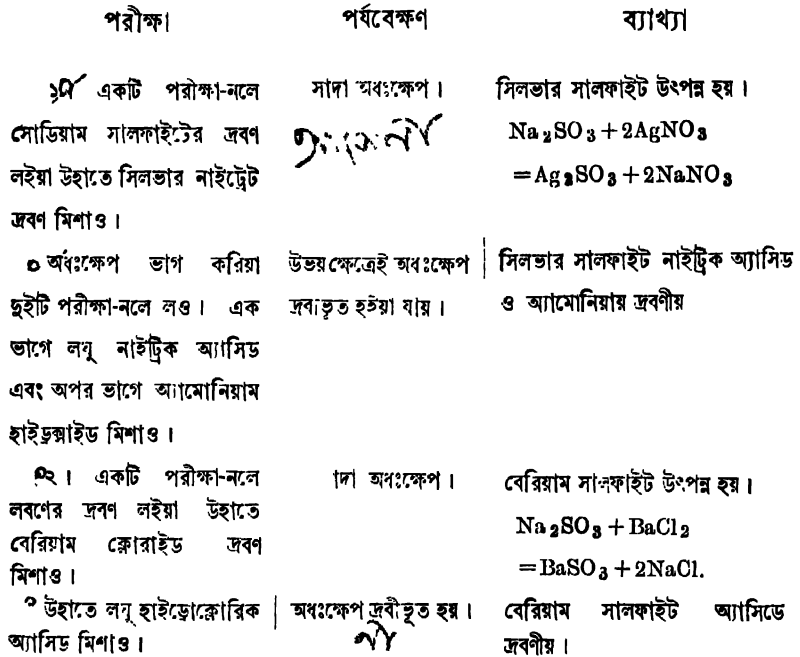 পরীক্ষা পর্যবেক্ষণ ব্যাখ্যা
১। একটি পরীক্ষা-নলে
সোডিয়াম সালফাইটের দ্রবণ
লইয়া উহাতে সিলভার নাইট্রেট
দ্রবণ মিশাও।
সাদা অধঃক্ষেপ।
সিলভার সালফাইট উৎপন্ন হয়।
Na₂SO₃ + 2AgNO₃
= Ag₂SO₃ + 2NaNO₃
অধঃক্ষেপ ভাগ করিয়া
দুইটি পরীক্ষা-নলে লও। এক
ভাগে লঘু নাইট্রিক অ্যাসিড
এবং অপর ভাগে অ্যামোনিয়াম
হাইড্রক্সাইড মিশাও।
উভয় ক্ষেত্রেই অধঃক্ষেপ
দ্রবীভূত হইয়া যায়।
সিলভার সালফাইট নাইট্রিক অ্যাসিড
ও অ্যামোনিয়ায় দ্রবণীয়
২। একটি পরীক্ষা-নলে
লবণের দ্রবণ লইয়া উহাতে
বেরিয়াম ক্লোরাইড দ্রবণ
মিশাও।
াদা অধঃক্ষেপ।
বেরিয়াম সালফাইট উৎপন্ন হয়।
Na₂SO₃ + BaCl₂
= BaSO₃ + 2NaCl.
উহাতে লঘু হাইড্রোক্লোরিক
অ্যাসিড মিশাও।
অধঃক্ষেপ দ্রবীভূত হয়।
বেরিয়াম সালফাইট অ্যাসিডে
দ্রবণীয়।